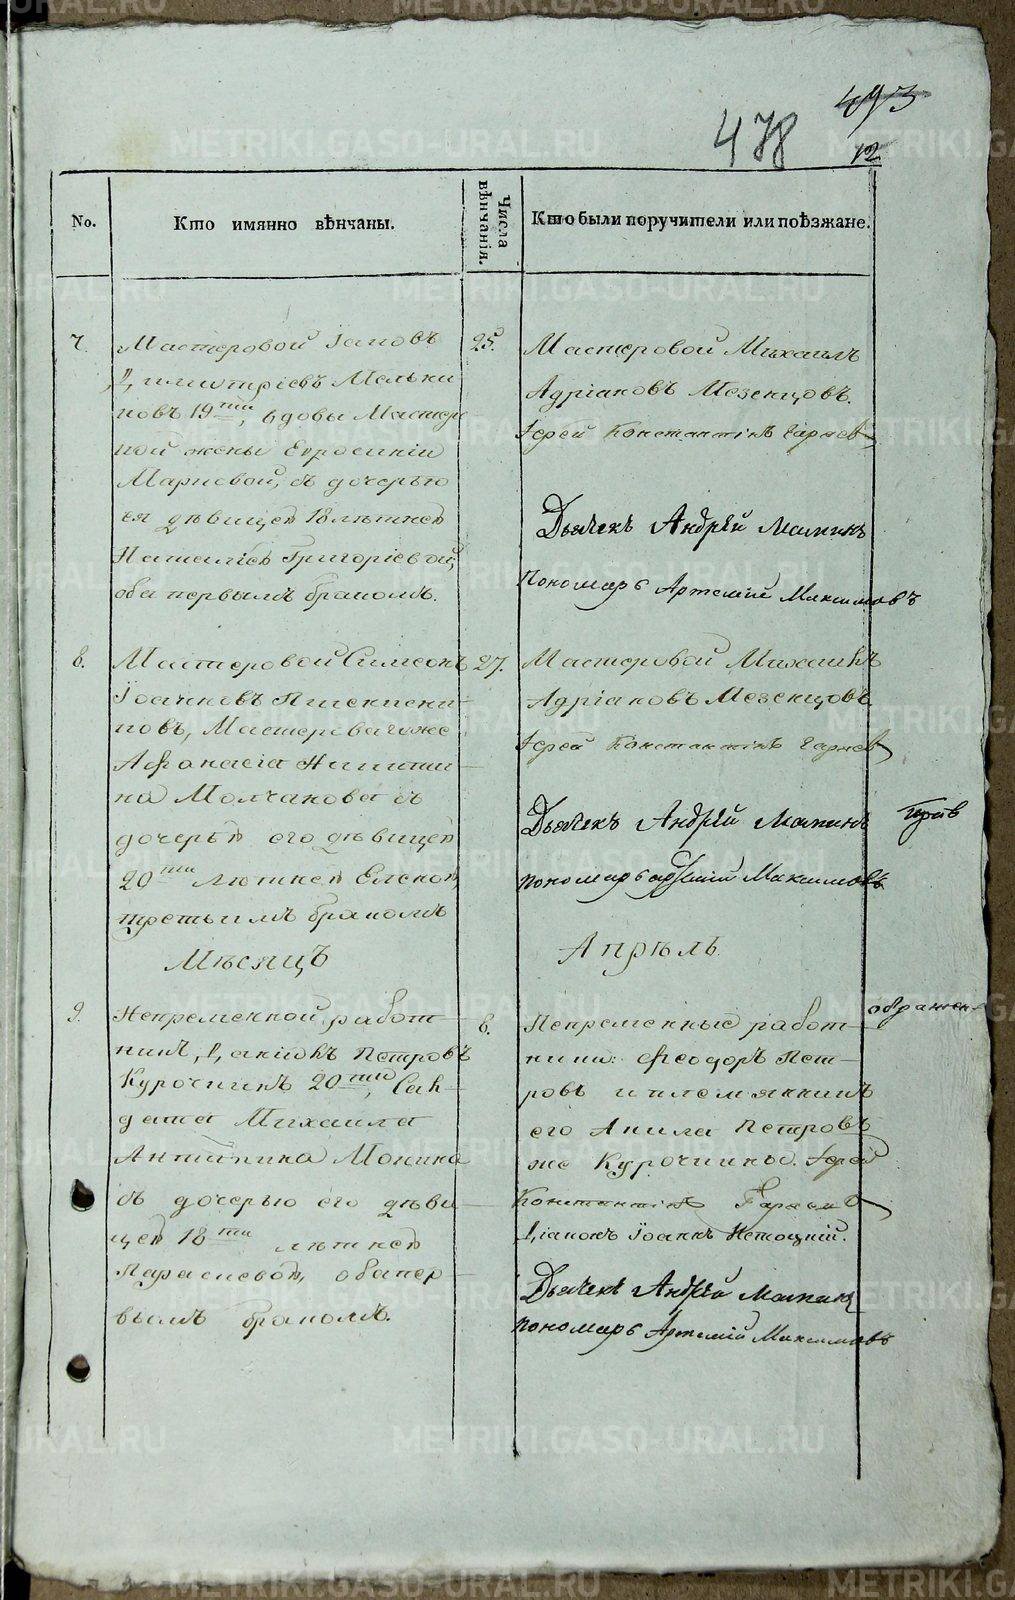 493
478
12
No.
Кто имянно вѣнчаны.
Числа вѣнчанія.
Кто были поручители или поѣзжане.
7.
Мастеровой Іаковъ
Димитріевъ Мельни
ковъ 19ти, вдовы Мастер
ской жены Евросиніи
Марковой, съ дочерью
ея дѣвицей 18 лѣтней
Наталіей Григоріевой,
оба первымъ бракомъ.
25.
Мастеровой Михаилъ
Адріановъ Мезенцовъ.
Іерей Константінъ Гаряев
Дьячекъ Андрѣй Мамин
Пономарь Артемій Максимовъ
8.
Мастеровой Симеонъ
Іоанновъ
новъ, Мастероваго же
Афанасія Никити
на Молчанова съ
дочерьй его дѣвицей
20ти лѣтней Еленой,
третьимъ бракомъ
27.
Мастеровой Михаилъ
Адріановъ Мезенцовъ
Іерей Константинъ Гаряев
Дьячекъ Андрѣй Маминъ
пономарь Артемій Максимовъ
Мѣсяцъ
Апрѣль.
9.
Непременной работ
никъ, Петровъ
Курочкинъ 20ти, Сал
дата Михаила
Антипина Монина
съ дочерью его дѣви
цей 18ти лѣтней
Парасковей, оба пер
вымъ бракомъ.
6.
Непременные работ
ники: Феодоръ Пет
ровъ и племянникъ
его Петровъ
же Курочкины. Іерей
Константінъ Гаряев
Діаконъ Іоаннъ
Дьячекъ Андрѣй Маминъ
пономарь Артемій Максимовъ